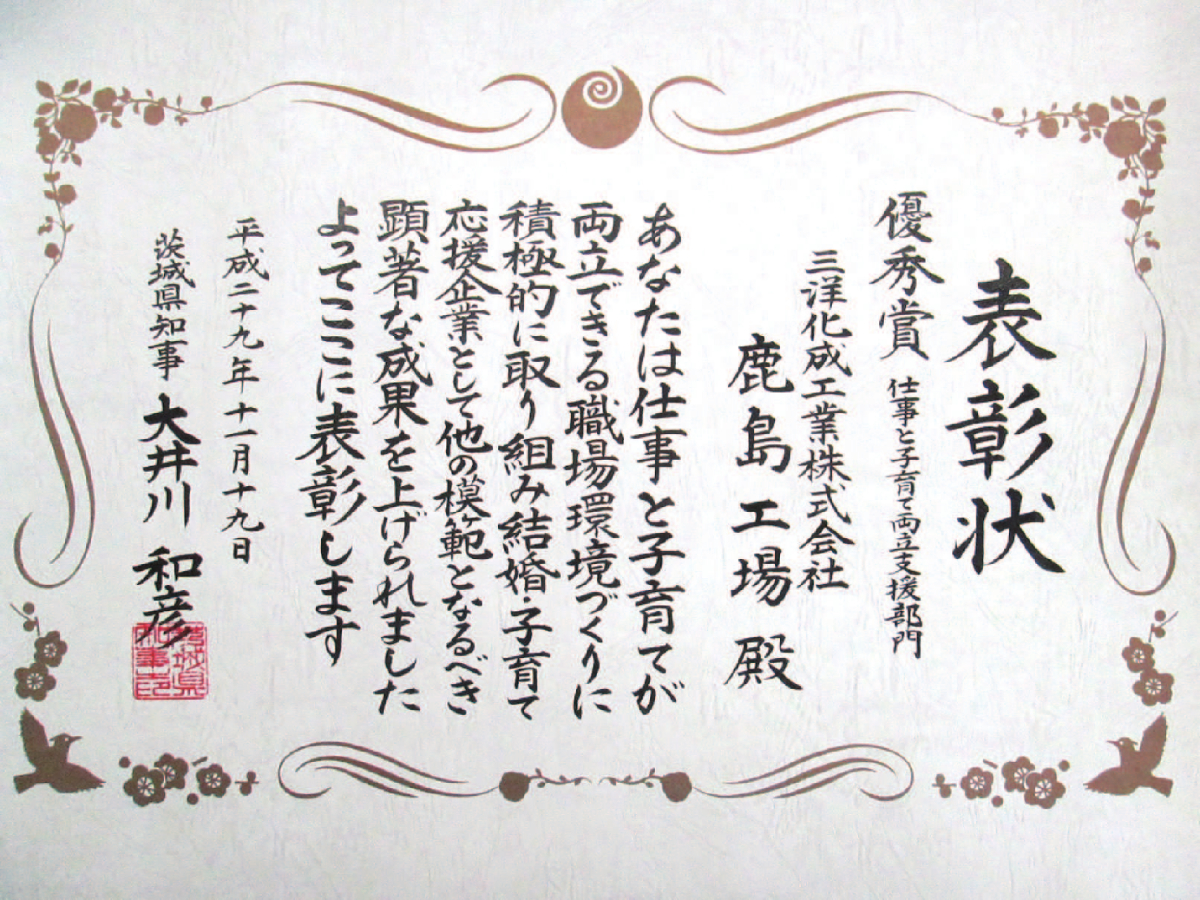 表彰状
優秀賞 仕事と子育て両立支援部門
三洋化成工業株式会社
鹿島工場殿
あなたは仕事と子育てが
両立できる職場環境づくりに
積極的に取り組み結婚・子育て
応援企業として他の模範となるべき
顕著な成果を上げられました
よってここに表彰します
平成二十九年十一月十九日
茨城県知事 大井川 和彦
茨城県知事印